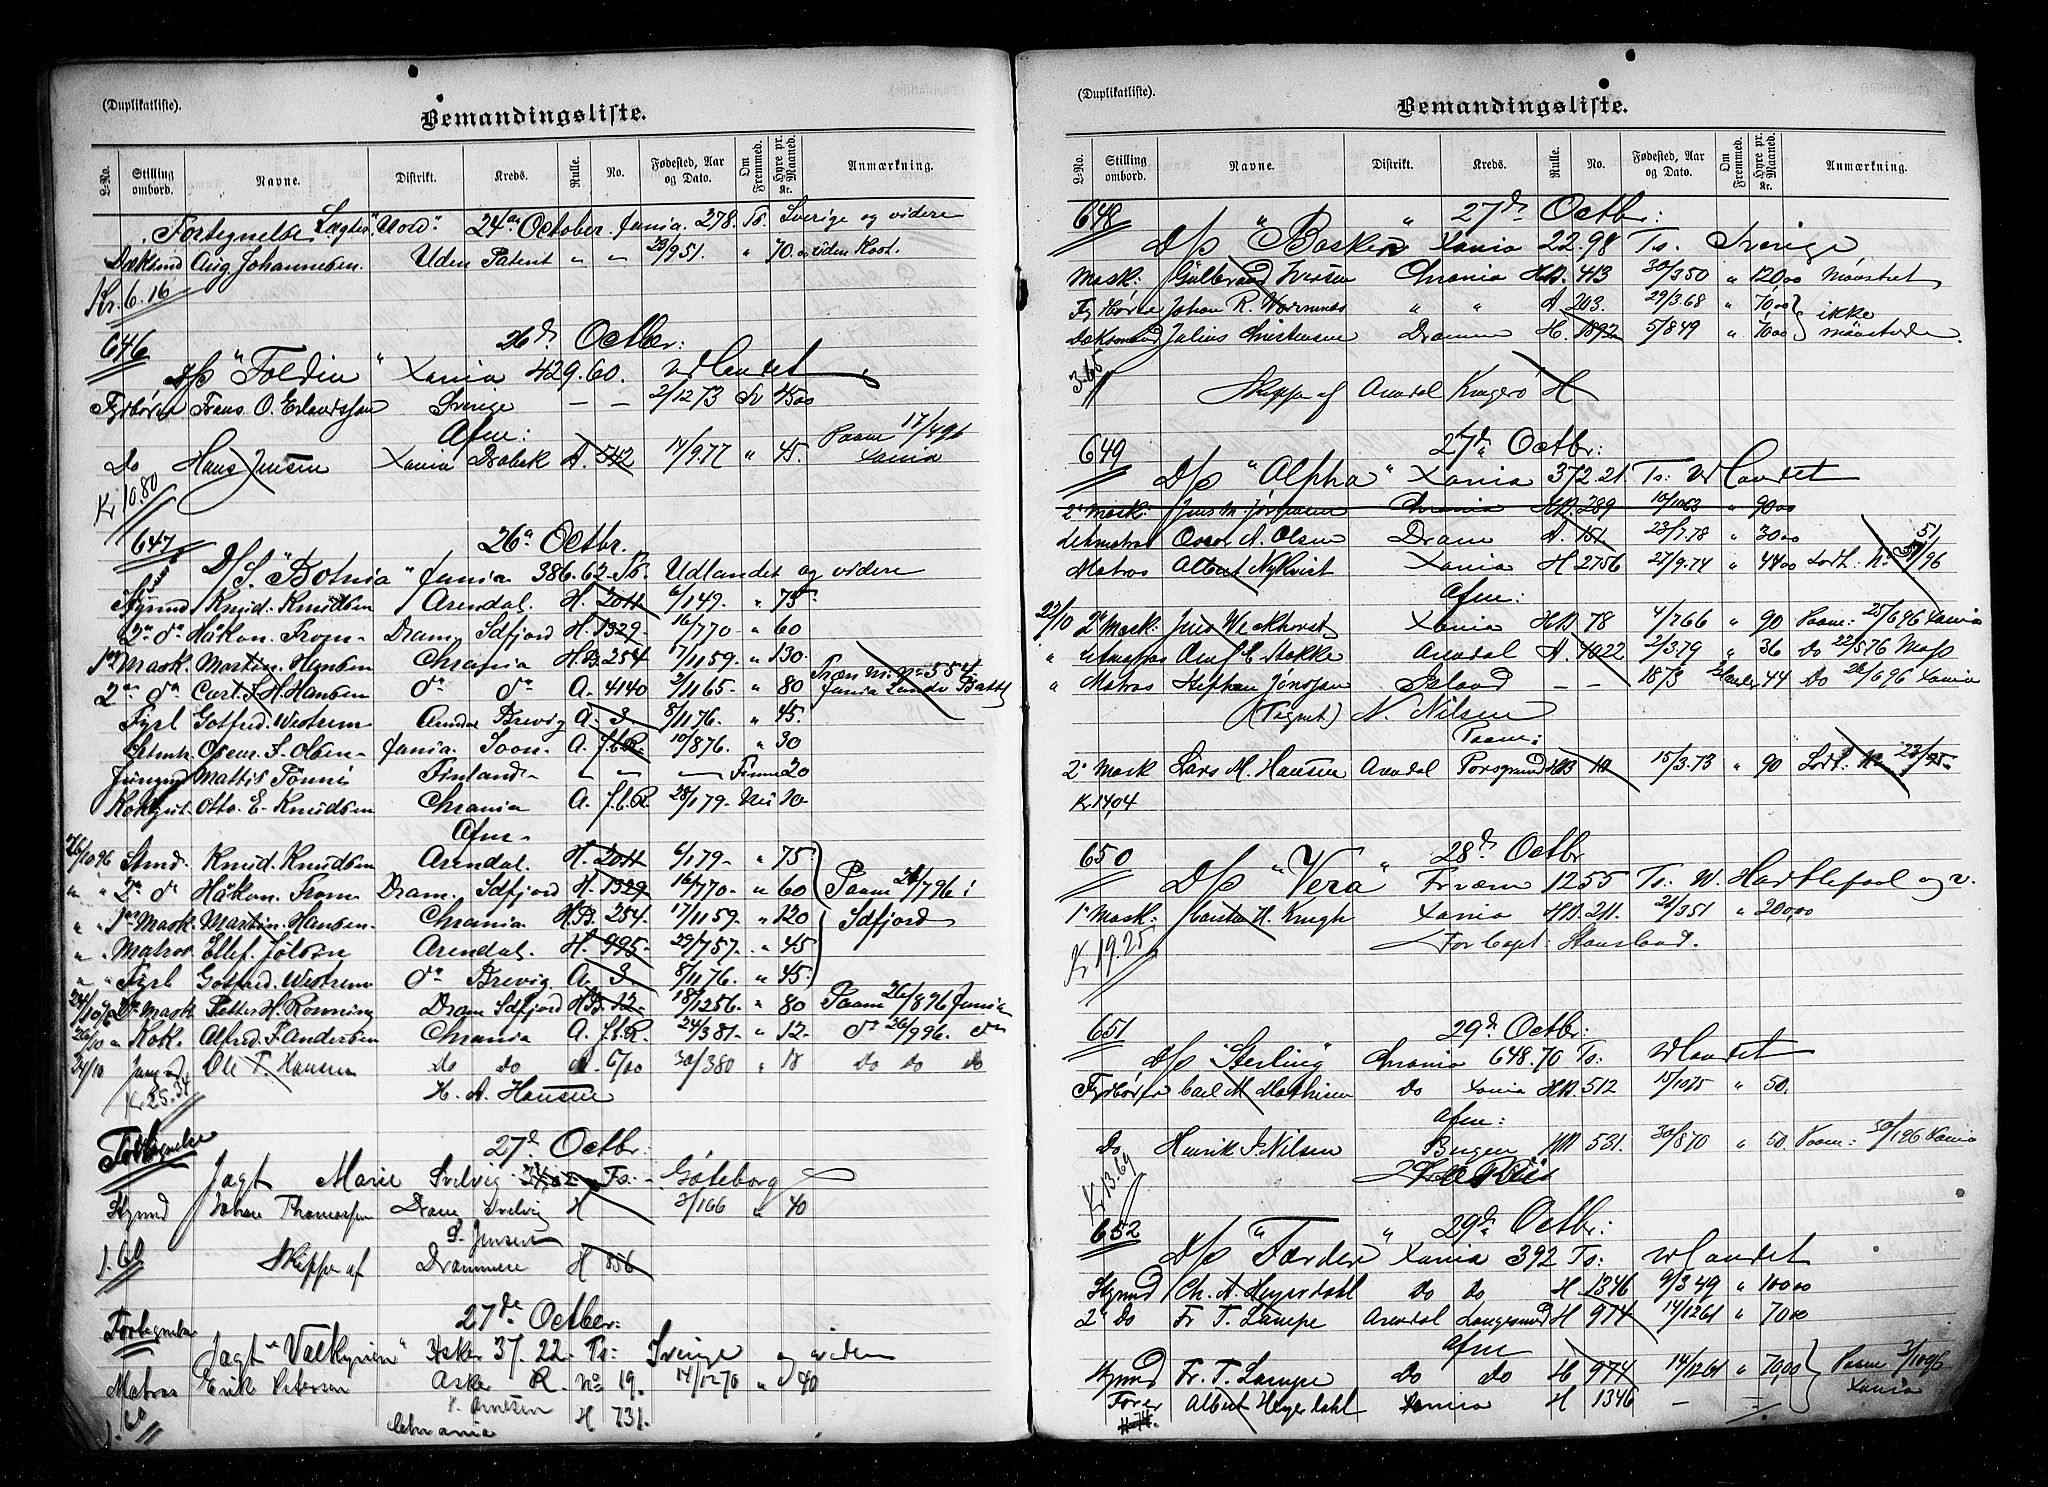 (Duplikatliste).
Bemandingsliste.
L.-No. Stilling ombord. Navne. Distrikt. Kreds. Rulle. No. Fødested, Aar og Dato. Om Fremmed. Hyre pr. Maaned. Kr. Anmærkning.
Fortegnelse Lægter "Nord" 24de October Xania 278 Ts. Sverige og videre
Dæksmd Aug Johannesen. Uden Patent " " 23/9 51. " 70. uden Kost.
Kr. 6.16
646 26d Octbr:
D/s "Foldin" Xania 429.60. Udlandet
Fyrbøter Frans O. Erlandssen Sverige — — 2/12 73 Sv 45.00
Afm:
Do Hans Jensen Xania Drøbak A. 542 14/9.77 " 45. Paam 17/4 96 Xania
Kr 10.80
647 26d Octbr.
D/S. "Botnia" Xania 386.62 Ts. Udlandet og videre
Styrmd Knud Knudsen Arendal. H. 2011 6/1 49. " 75
2n do Håkon From Dram. Sdfjord H. 1329 16/7 70 " 60
1n Mask. Martin Hansen Chrania H.B. 254 17/11 59- " 130
2n do Carl S. H. Hansen do do A. 4140 2/11 65- " 80
Fyrb Gotfred. Westrem Arendal Brevig A. 3. 8/11 76. " 45.
Letmtr. Oscar. A. Olsen Xania. Soon A. f.l.R. 10/8 76. " 30
Jungmd Mattis Tönni Finland — " — — Finne 20
Kokgut. Otto. E. Knudsen Chrania A. f.l.R. 28/1 79- Nei 10-
Afm-
26/10 96 Stmd. Knud. Knudsen Arendal. H. 2011 6/1 79- " 75
" " 2n do Håkon From Dram. Sdfjord H. 1329 16/7 70- " 60 Paam 24/7 96 i
" " 1n Mask. Martin Hansen. Chrania H.B. 254. 17/11 59- " 120 Sdfjord
" . Matros Ellef. Jölsen Arendal. H. 995. 29/7 57- " 45
" " Fyrb Gotfred Westrem do Brevig A. 3. 8/11 76. " 45
24/10 96 2n Mask Petter H. Ronning Dram Sdfjord H.B. 12. 18/12 56- " 80 Paam 26/8 96 Xania
26/10 " Kok. Alfred. F. Andersen Chrania A. f.l.R. 24/3 81. " 12- do 26/9 96. do
24/10 Jungmd Ole T. Hansen do do A. 6/00 30/3 80 " 18 Do Do Do
Kr 25.34 H. A. Hansen
Fortegnelse 27d Octbr:
Jagt Marie Svelvig Ts. - Göteborg
Stymd Johan Thomassen Dram Svelvig H 3/1 66 " 40
P. Jensen
1.60 Skippe af Drammen H 856
Fortegnelse 27de Octber:
Jagt "Valkyrien" Asker 37.22 Ts: Sverige og videre
Matros Erik Petersen Asker R. No 19. 14/12 70 " 40
Chrania H 731.
1.60
(Duplikatliste).
Bemandingsliste.
L.-No. Stilling ombord. Navne. Distrikt. Kreds. Rulle. No. Fødested, Aar og Dato. Om Fremmed. Hyre pr. Maaned. Kr. Anmærkning.
648 27d Octbr:
D/s "Basken" Xania 22.98 Ts. Sverige
Mask: Gulbrand Iversen Chrania HB. 413 30/3 50 " 120.00 Mønstret
Fyrbøter Johan R. " " A 203. 29/3 68 " 70.00 ikke
Dæksmd Julius Christensen Drammen H. 1892 5/8 49 " 70.00 mønstrede.
3.65
Skippe af Arendal Kragerø H
649 27d Octbr:
D/s "Alpha" Xania 372.21 Ts: Udlandet
2n Mask: Jens M. Jørgensen Chrania HB. 289 10/10 63 " 90.00
Letmatros Oscar A. Olsen Dram A. 151 23/7.78 " 30.00
Matros Albert Nykvist Xania H 2756 27/9.74 " 44.00 Lodt. No 51/96
Afm:
22/10 2n Mask: Xania HB 78 4/7 66 " 90 Paam: 25/6 96 Xania
" Letmatros Arendal A. 1022 2/3.79 " 36 Do 22/5 76 Moss
" Matros Stefhan Jónsson Island — — 18/3 44 Do 26/6 96 Xania
(Tegnet) N. Nilsen
Paam:
2n Mask Lars M. Hansen Arendal Porsgrund HB 10 15/3.73 " 90 Lodt. No 23/95.
Kr 14,04
650 28d Octbr
D/s "Vera" Tværn 1255 Ts: W. Hartlepool og v.
1n Mask: Karsten H. Krogh Xania HB. 211. 21/3 51 " 200,00
Kr 19.25 For Capt: Stansland.
651 29d Octbr:
D/s "Sterling" Chrania 648.70 Ts: Udlandet
Fyrbøter Carl M. Mathisen Do Xania HB. 512 15/10 75 " 50.
Afm:
Do Henrik J. Nilsen Bergen HB 531. 30/8 70 " 50 Paam: 30/1 96 Xania
Kr 13.69
652 29d Octbr:
D/s "Færder" Xania 392 Ts: Udlandet
Stymd Ch. A. Heyerdahl Do Do H. 1346 9/3 49 " 100.00
2n Do Fr. T. Lampe Arendal Langesund H 974 14/12 61 " 70.00
Afm
Stymd Fr. T. Lampe Do Do H 974 14/12 61 " 70,00 Paam 3/10 96
Fører Albert Heyerdahl Xania H 1346 — = Xania